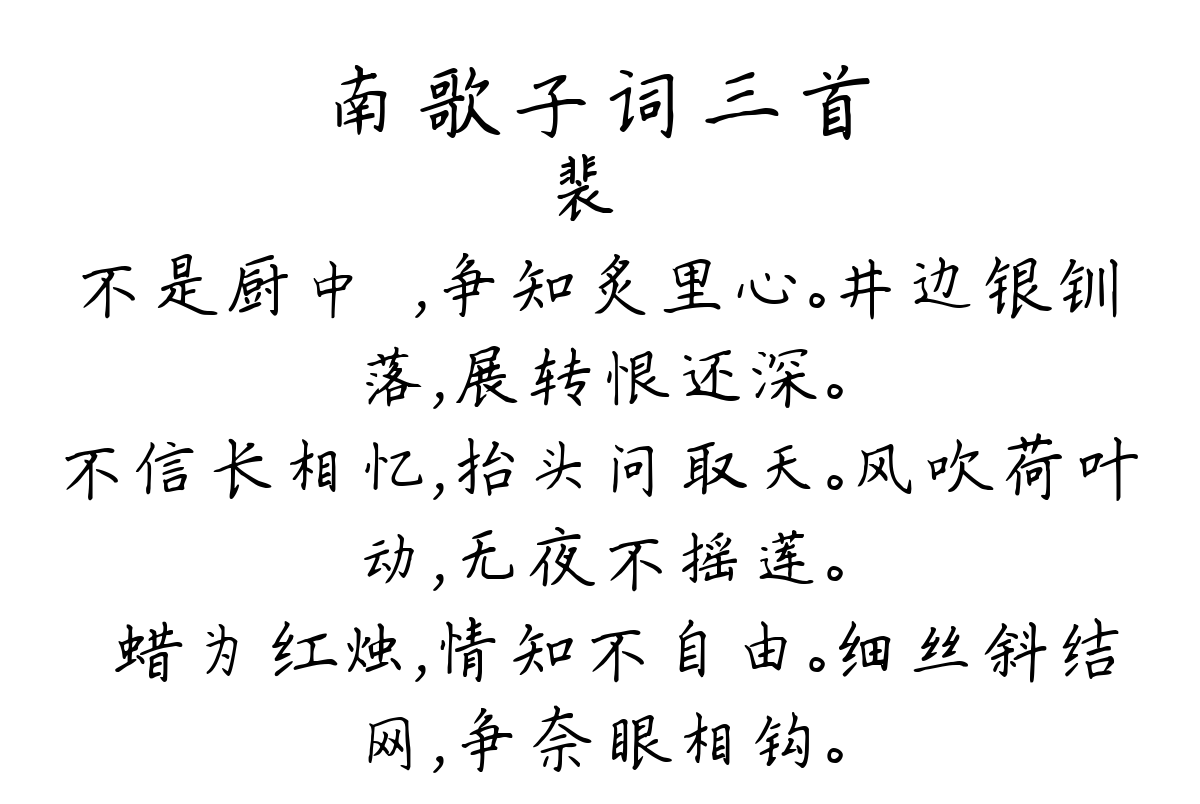 南歌子词三首
裴
不是厨中 ,争知炙里心。井边银钏
落,展转恨还深。
不信长相忆,抬头问取天。风吹荷叶
动,无夜不摇莲。
蜡为红烛,情知不自由。细丝斜结
网,争奈眼相钩。